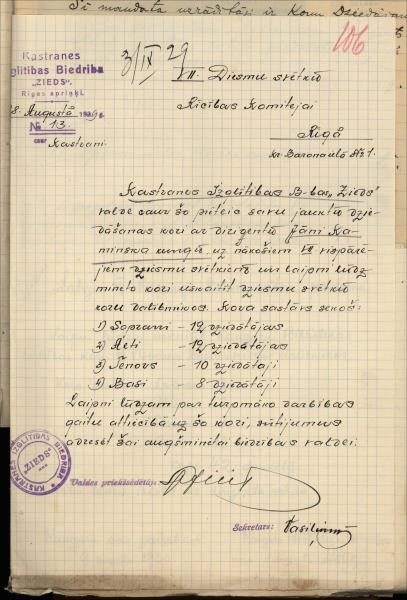 Šī mandata uzrādītājs ir Kora Dziedāšan
106
3/IX 29
Kastranes
Izglītibas Biedrība
"ZIEDS".
Rigas apriņķī.
28. Augustā 1929 g.
№ 13.
caur Kastrani
VII. Dziesmu svētku
Rīcības Komitejai
Rīgā
Kr. Barona ielā № 1.
Kastranes Izglītibas B-bas „Zieds"
valde caur šo pieteic savu jauktu dzie-
dāšanas kori ar dirigentu Jāni Ka-
minska kungu, uz nākošiem VII vispārē-
jiem dziesmu svētkiem un laipni lūdz
minēto kori uzskaitīt dziesmu svētku
koru dalibnieкos. Kora sastāvs sekošs:
1) Soprani – 12 dziedātājas
2) Alti – 12 dziedātājas
3) Tenors – 10 dziedātāji
4) Basi – 8 dziedātāji
Laipni lūdzam par turpmāko darbības
gaitu attiecībā uz šo kori, sūtijumus
adresēt šai augšminētai biedrības valdei.
KASTRANES IZGLITIBAS BIEDRIBA
"ZIEDS"
Valdes priekšsēdētājs:
Sekretars: